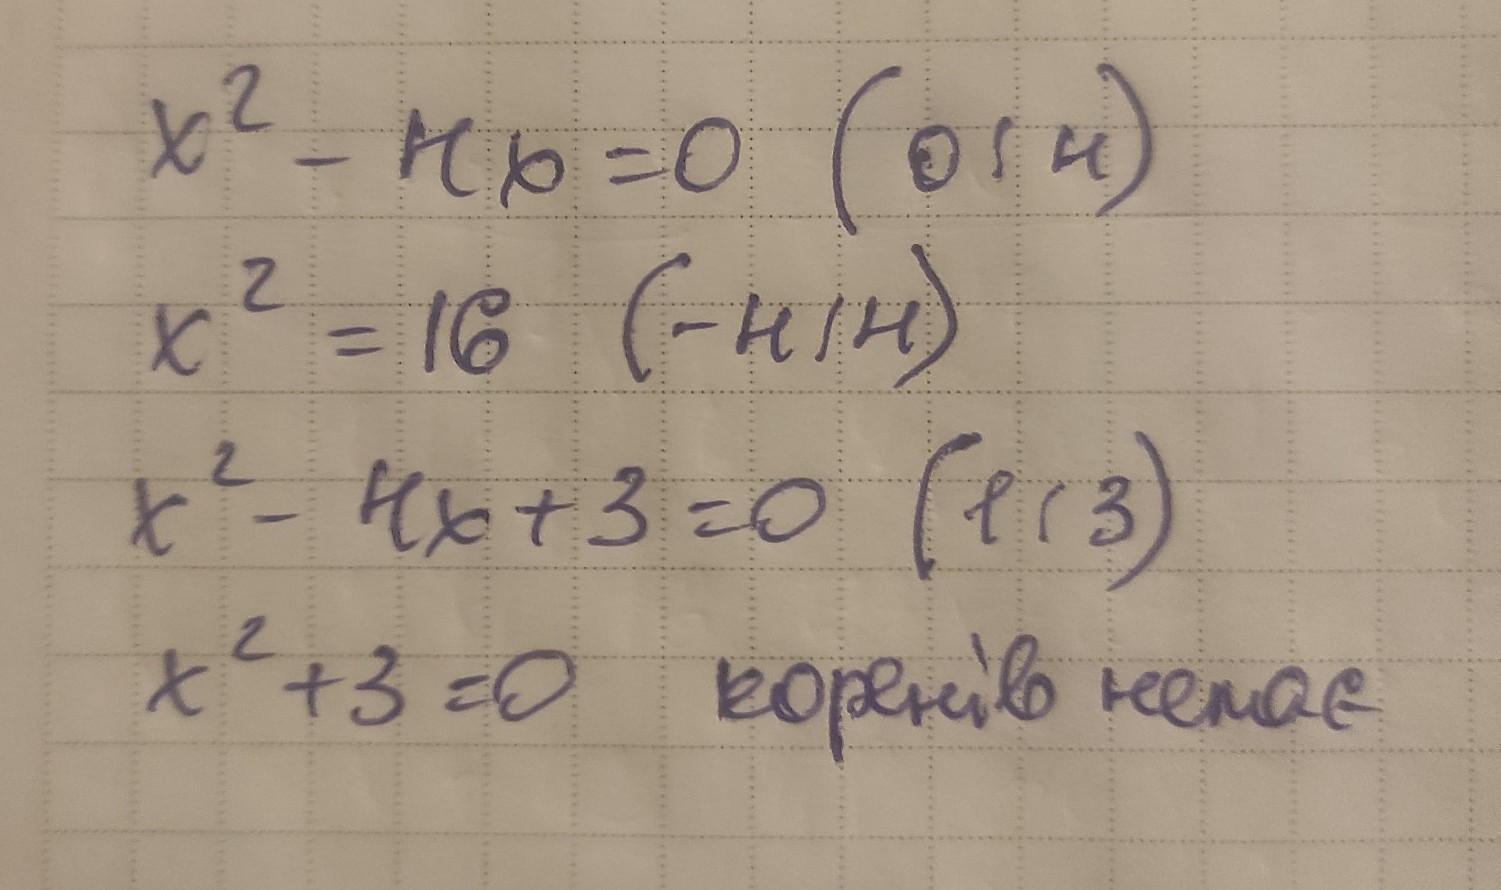 x² - 4x = 0 (0; 4)
x² = 16 (-4; 4)
x² - 4x + 3 = 0 (1; 3)
x² + 3 = 0 коренів немає